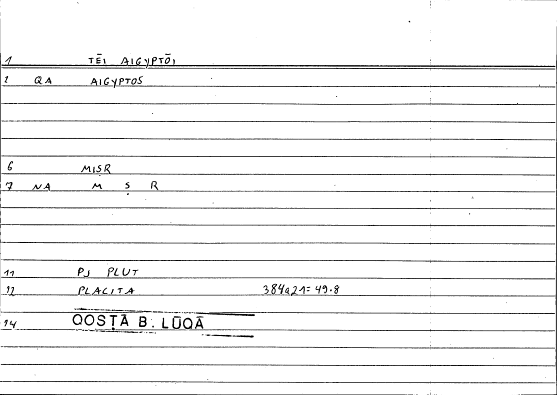 1 TĒI AIGYPTŌI
2 QA AIGYPTOS
6 MIṢR
7 NA M Ṣ R
11 PJ PLUT
12 PLACITA 384a21=49.8
14 QOSṬĀ B. LŪQĀ